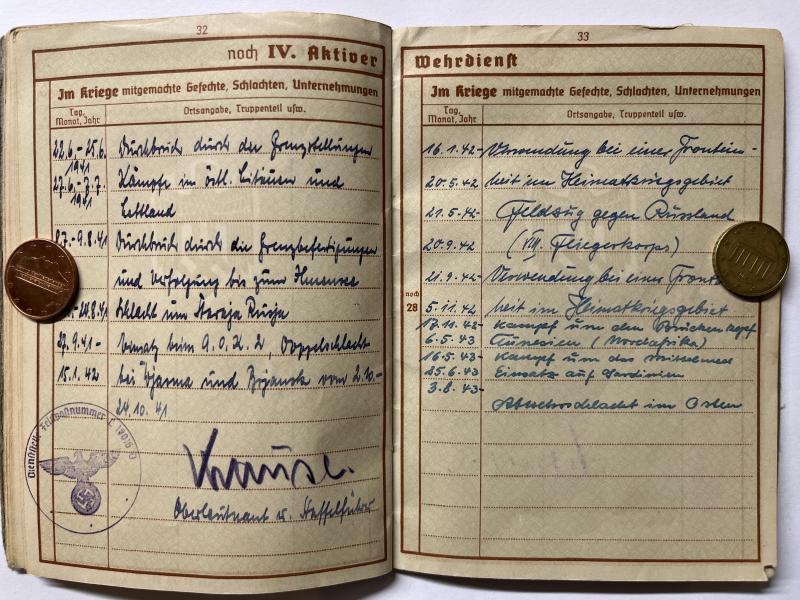 32
noch IV. Aktiver
Im Kriege mitgemachte Gefechte, Schlachten, Unternehmungen
Tag, Monat, Jahr
Ortsangabe, Truppenteil usw.
22.6.-25.6. 1941 Durchbruch durch die Grenzstellungen
27.6.-7.7. 1941 Kämpfe in östl. Litauen und
Lettland
8.7.-9.8.41 Durchbruch durch die Grenzbefestigungen
und Verfolgung bis zum Ilmensee
-20.8.41 Schlacht um Staraja Russja
22.9.41- Einsatz beim A.O.K. 2, Doppelschlacht
15.1.42 bei Wjasma und Brjansk vom 2.10.-
24.10.41
Dienststelle Feldpostnummer L
Krause.
Oberleutnant u. Staffelführer
33
Wehrdienst
Im Kriege mitgemachte Gefechte, Schlachten, Unternehmungen
Tag, Monat, Jahr
Ortsangabe, Truppenteil usw.
16.1.42- Verwendung bei einer Frontein-
20.5.42 heit im Heimatkriegsgebiet
21.5.42- Feldzug gegen Russland
20.9.42 (VIII. Fliegerkorps)
21.9.42- Verwendung bei einer Frontein
noch 28
5.11.42 heit im Heimatkriegsgebiet
17.11.42- Kampf um den Brückenkopf
6.5.43 Tunesien (Nordafrika)
16.5.43- Kampf um das Mittelmeer
25.6.43 Einsatz auf Sardinien
3.8.43-
Abwehrschlacht im Osten